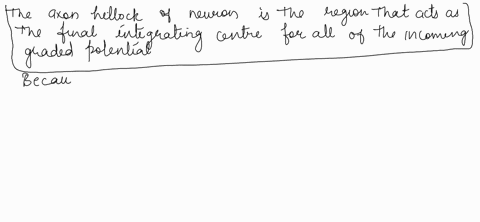 The axon hellock of neuron is the region that acts as
the final integrating centre for all of the incoming
graded potential
Becau